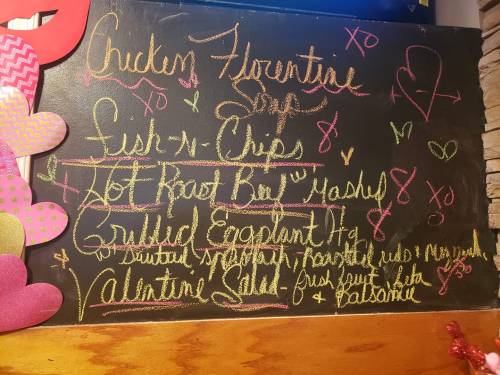 Chicken Florentine
XO
Soup
XO
Fish-N-Chips 8
Hot Roast Beef w/ Mashed 8
XO
Grilled Eggplant 8
w/ Sauteed spinach, Roasted reds &
Valentine Salad - fresh fruit, feta
& Balsamic